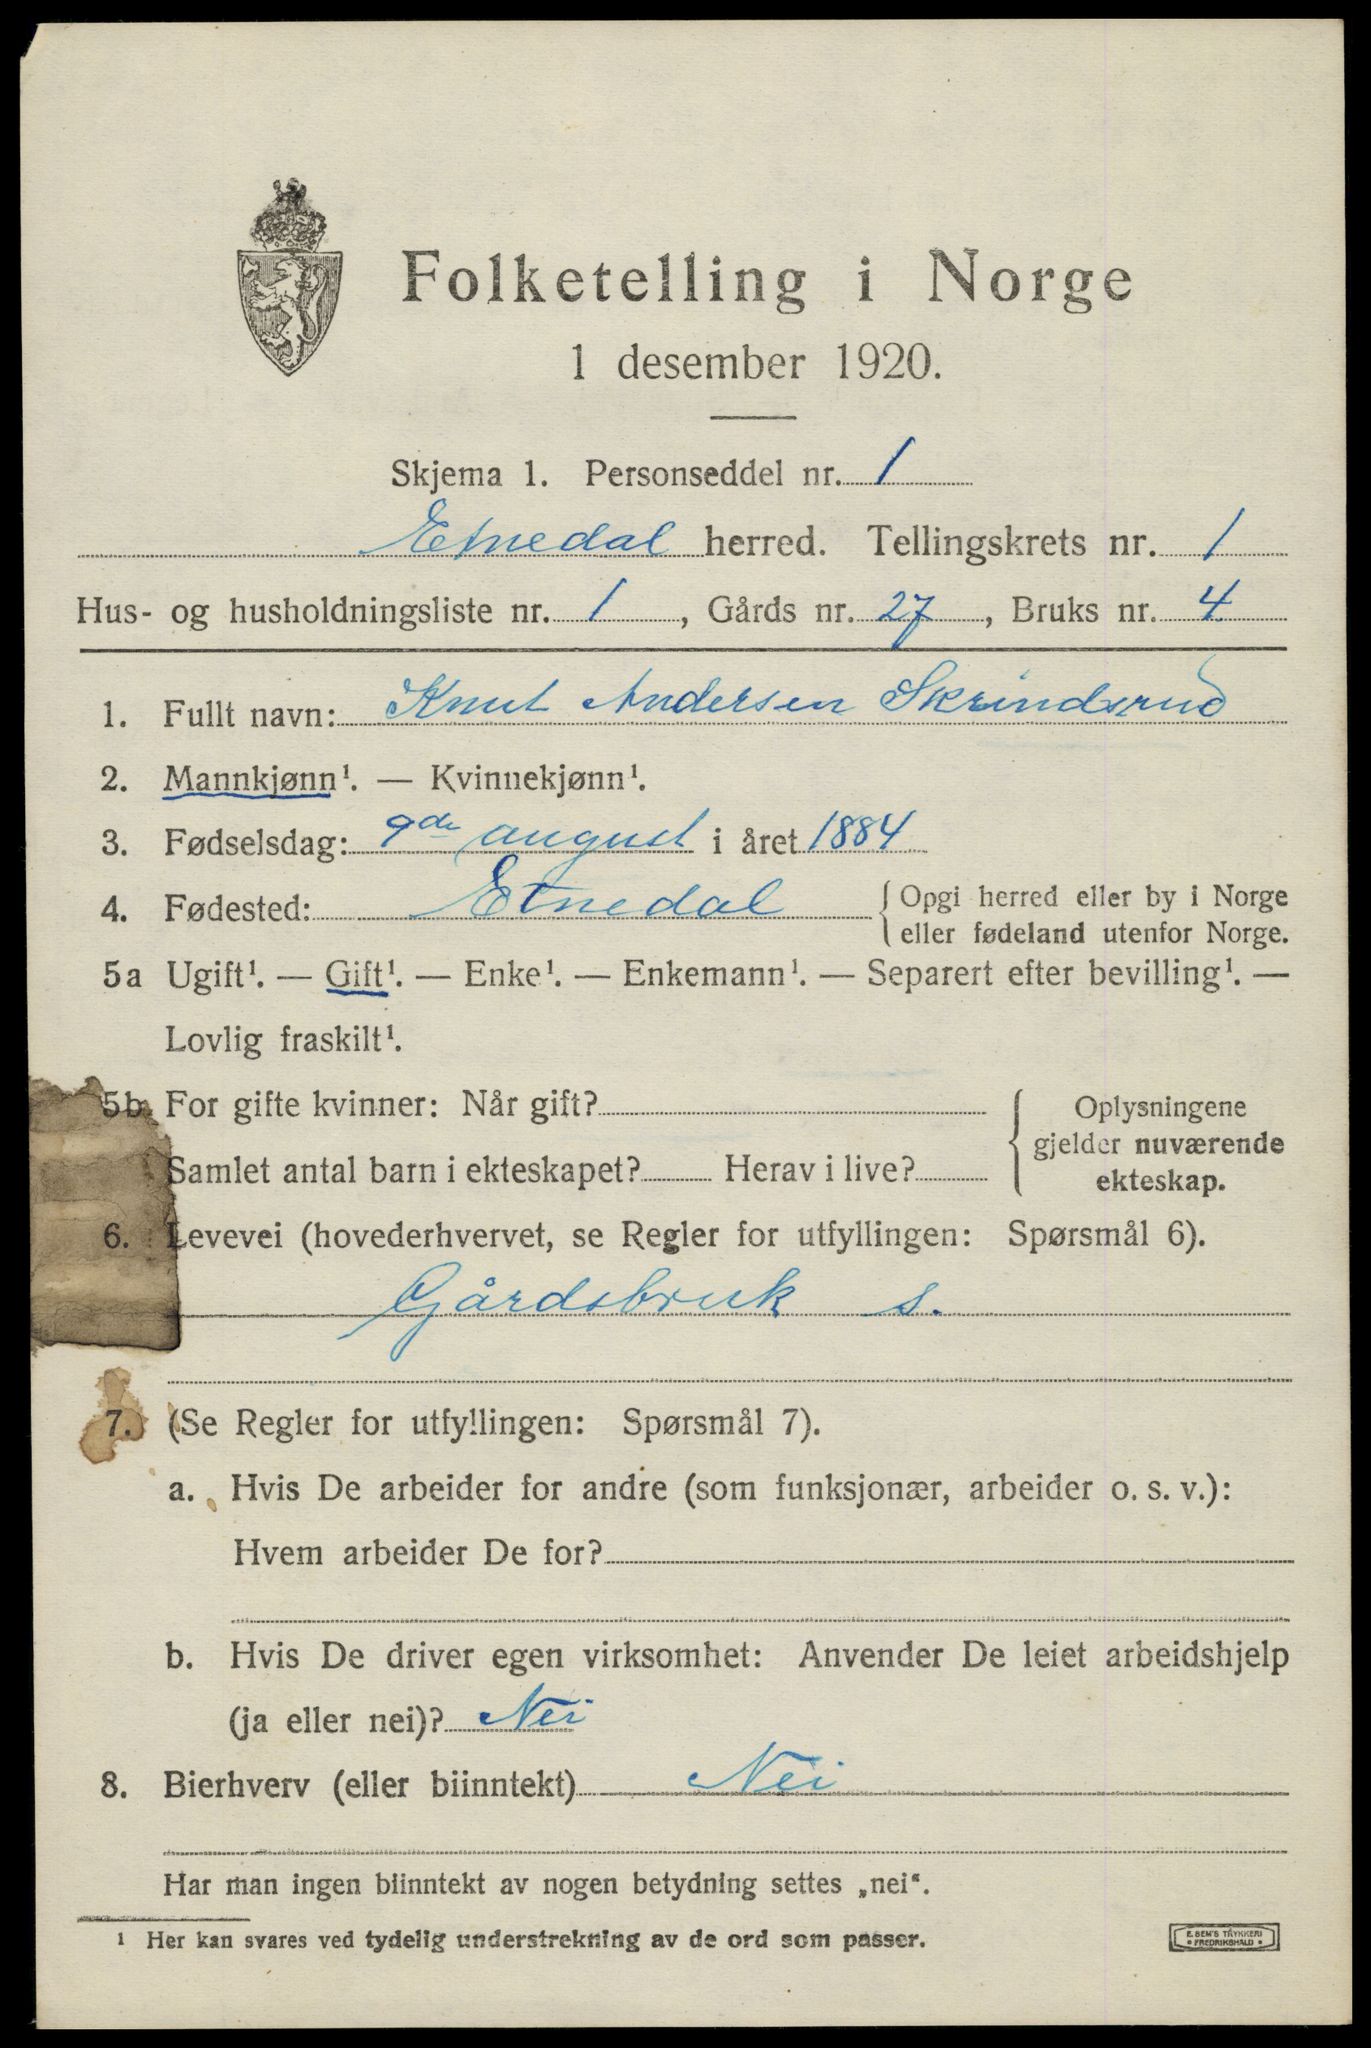 Folketelling i Norge
1 desember 1920.
Skjema 1. Personseddel nr. 1
Etnedal herred. Tellingskrets nr. 1
Hus- og husholdningsliste nr. 1, Gårds nr. 27, Bruks nr. 4.
1. Fullt navn: Knut Andersen Skrindsrud
2. Mannkjønn¹. — Kvinnekjønn¹.
3. Fødselsdag: 9de august i året 1884
4. Fødested: Etnedal { Opgi herred eller by i Norge
eller fødeland utenfor Norge.
5a Ugift¹. — Gift¹. — Enke¹. — Enkemann¹. — Separert efter bevilling¹. —
Lovlig fraskilt¹.
5b. For gifte kvinner: Når gift? { Oplysningene
gjelder nuværende
Samlet antal barn i ekteskapet? Herav i live? ekteskap.
6. Levevei (hovederhvervet, se Regler for utfyllingen: Spørsmål 6).
Gårdsbruk s.
7. (Se Regler for utfyllingen: Spørsmål 7).
a. Hvis De arbeider for andre (som funksjonær, arbeider o. s. v.):
Hvem arbeider De for?
b. Hvis De driver egen virksomhet: Anvender De leiet arbeidshjelp
(ja eller nei)? Nei
8. Bierhverv (eller biinntekt) Nei
Har man ingen biinntekt av nogen betydning settes „nei“.
¹ Her kan svares ved tydelig understrekning av de ord som passer.
E. SEM'S TRYKKERI
• FREDRIKSHALD •